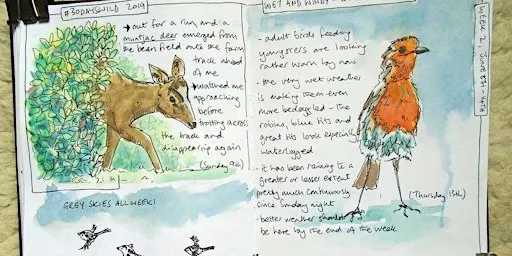 #30DAYSWILD 2019
→ out for a run and a
muntjac deer emerged from
the bean field onto the farm
track ahead
of me
→ watched me
approaching
before
trotting across
the track and
disappearing again
(Sunday 9th)
GREY SKIES ALL WEEK!
WET AND WINDY
- adult birds feeding
youngsters are looking
rather worn by now
- the very wet weather
is making them even
more bedraggled - the
robins, blue tits and
great tits look especially
waterlogged
- it has been raining to a
greater or lesser extent
pretty much continuously
since Sunday night
- better weather should
be here by the end of the week
(Thursday 13th)
WEEK 2, JUNE 8TH - 14TH